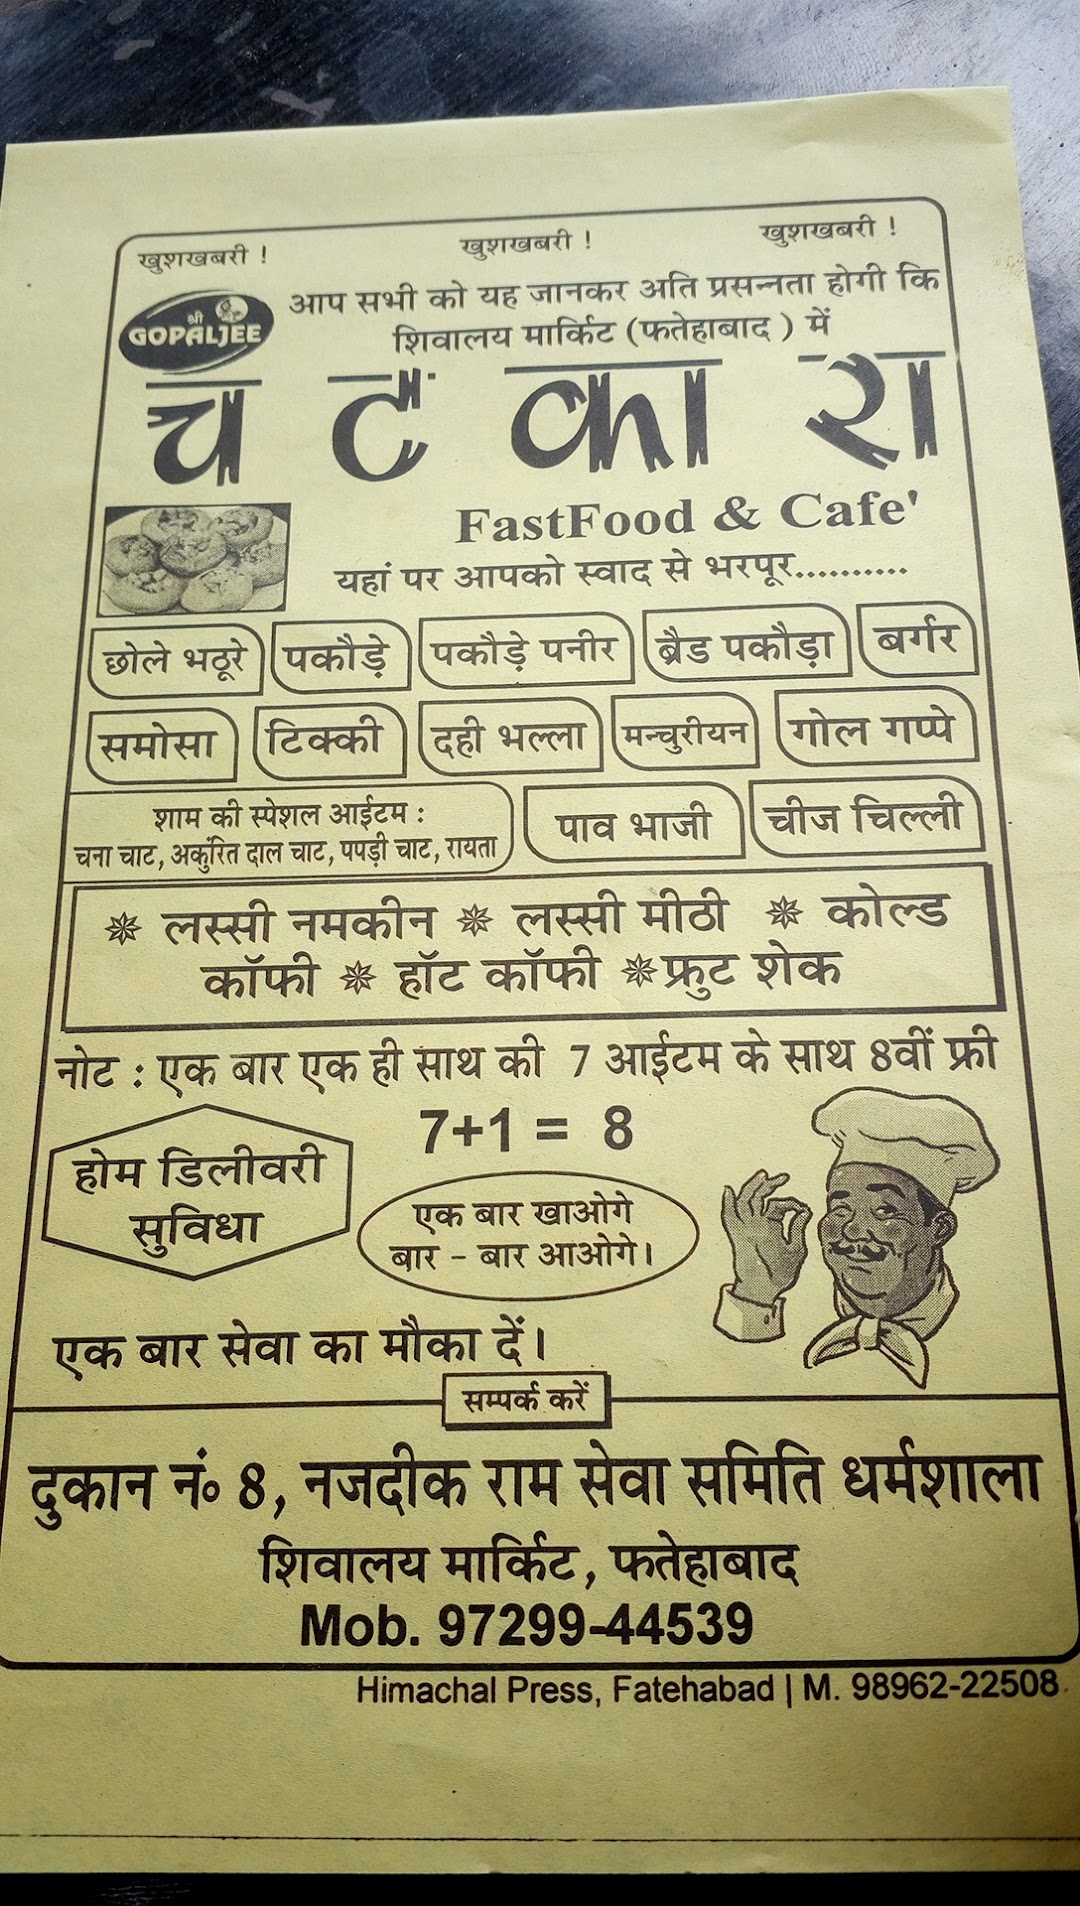 खुशखबरी ! खुशखबरी ! खुशखबरी !
श्री
GOPALJEE
आप सभी को यह जानकर अति प्रसन्नता होगी कि
शिवालय मार्किट (फतेहाबाद ) में
चटकारा
FastFood & Cafe'
यहां पर आपको स्वाद से भरपूर..........
छोले भठूरे पकौड़े पकौड़े पनीर ब्रैड पकौड़ा बर्गर
समोसा टिक्की दही भल्ला मन्चुरीयन गोल गप्पे
शाम की स्पेशल आईटम :
चना चाट, अकुंरित दाल चाट, पपड़ी चाट, रायता
पाव भाजी चीज चिल्ली
❋ लस्सी नमकीन ❋ लस्सी मीठी ❋ कोल्ड
कॉफी ❋ हॉट कॉफी ❋ फ्रुट शेक
नोट : एक बार एक ही साथ की 7 आईटम के साथ 8वीं फ्री
7+1 = 8
होम डिलीवरी
सुविधा
एक बार खाओगे
बार - बार आओगे।
एक बार सेवा का मौका दें।
सम्पर्क करें
दुकान नं॰ 8, नजदीक राम सेवा समिति धर्मशाला
शिवालय मार्किट, फतेहाबाद
Mob. 97299-44539
Himachal Press, Fatehabad | M. 98962-22508